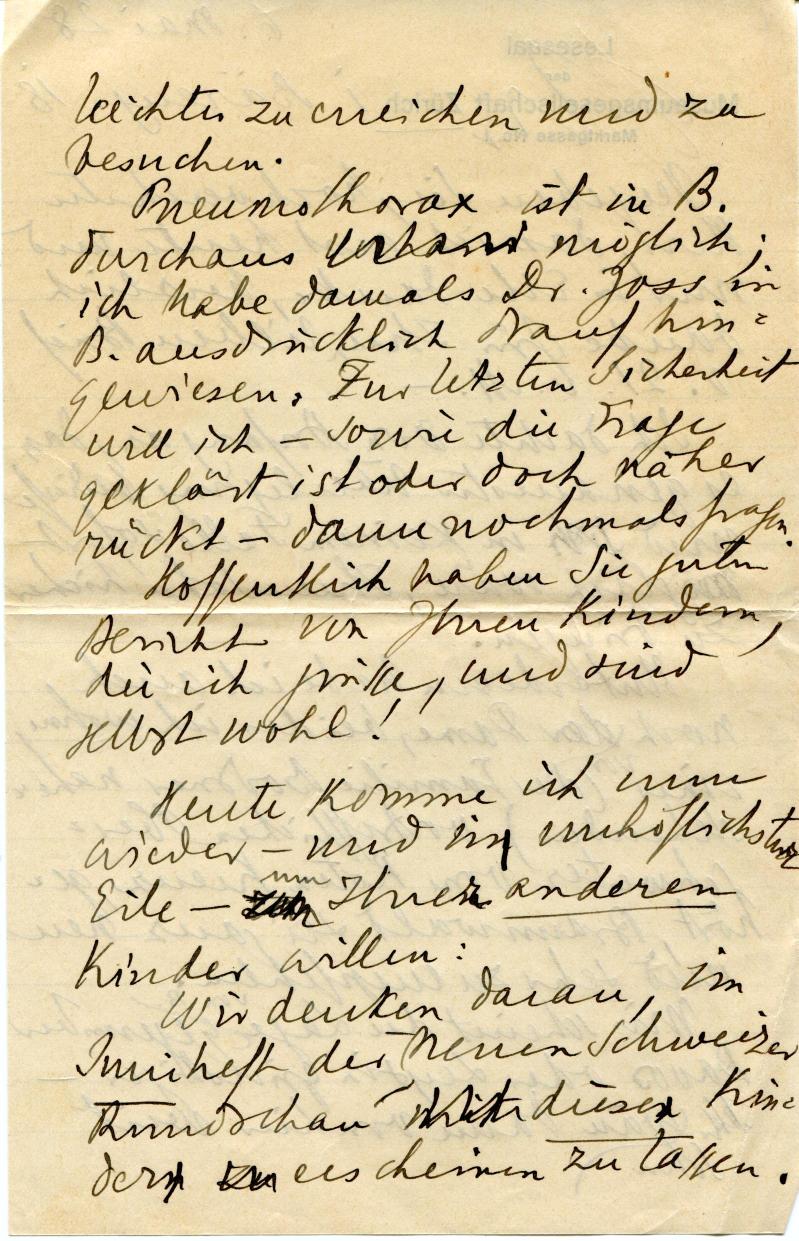 leichter zu erreichen und zu
besuchen.
Pneumothorax ist in B.
durchaus möglich;
ich habe damals Dr. Joss in
B. ausdrücklich drauf hin=
gewiesen. Zur letzten Sicherheit
will ich – sowie die Frage
geklärt ist oder doch näher
rückt – dann nochmals fragen.
Hoffentlich haben Sie guten
Bericht von Ihren Kindern,
die ich grüsse, und sind
selbst wohl!
Heute komme ich nun
wieder – und in unhöflichster
Eile – um Ihrer anderen
Kinder willen:
Wir denken daran, im
Juniheft der Neuen Schweizer
Rundschau diese Kin=
der erscheinen zu lassen.
Lesesaal
der
Museumsgesellschaft Zürich
Marktgasse No. 1